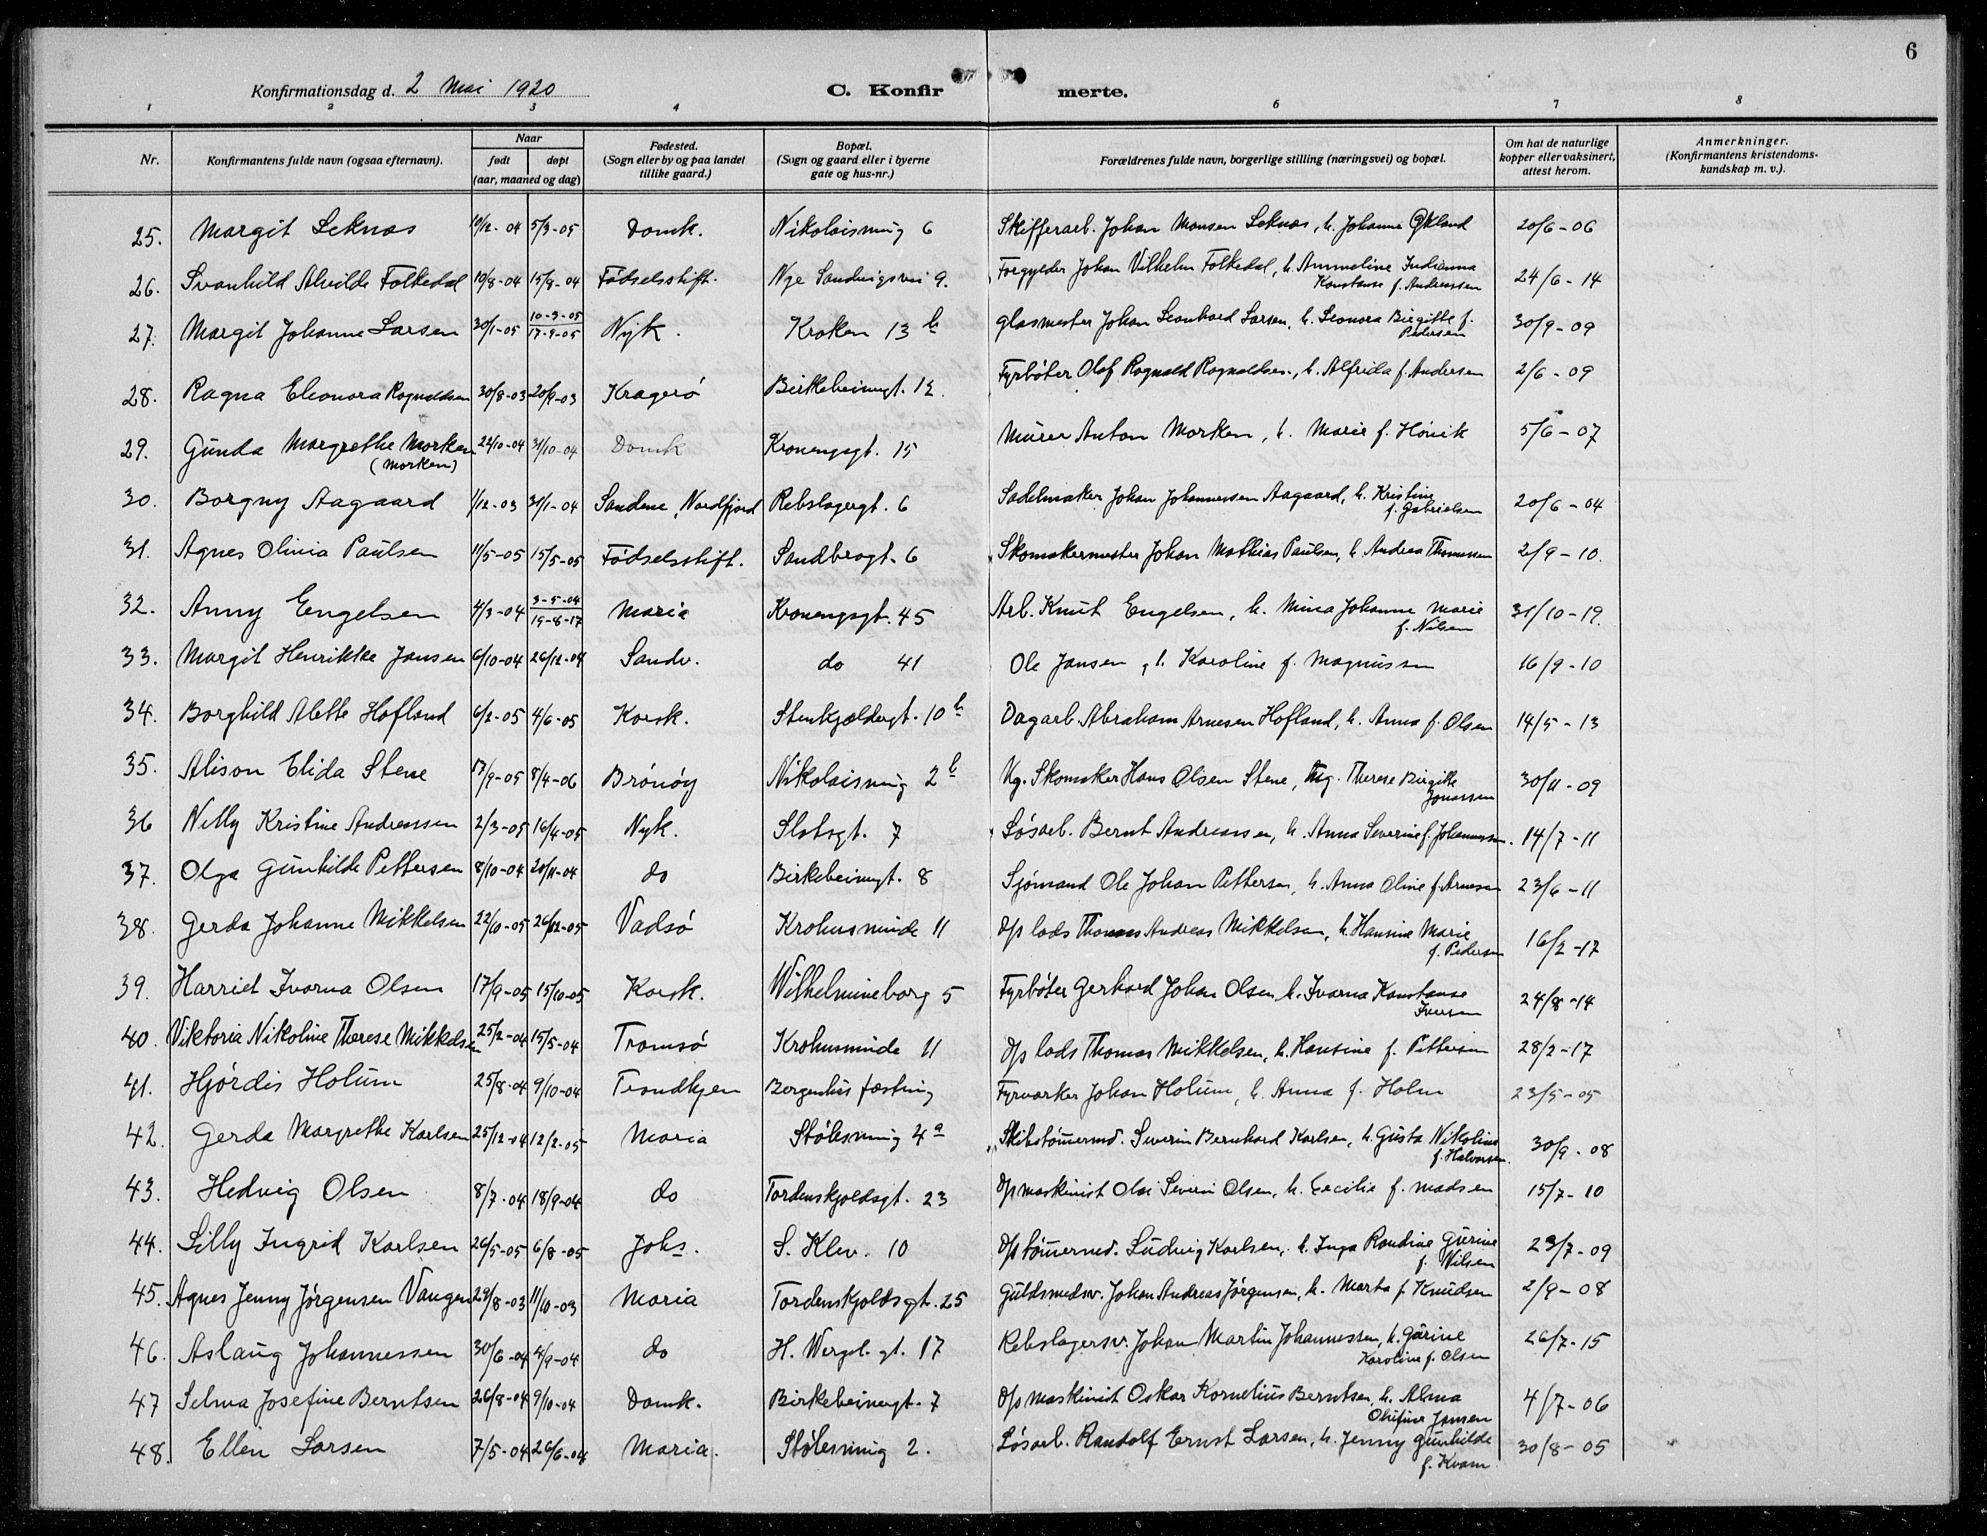 6
Konfirmationsdag d. 2 Mai 1920 C. Konfirmerte.
1 2 3 4 6 7 8
Nr. Konfirmantens fulde navn (ogsaa efternavn). Naar født døpt (aar, maaned og dag) Fødested. (Sogn eller by og paa landet tillike gaard.) Bopæl. (Sogn og gaard eller i byerne gate og hus-nr.) Forældrenes fulde navn, borgerlige stilling (næringsvei) og bopæl. Om hat de naturlige kopper eller vaksinert, attest herom. Anmerkninger. (Konfirmantens kristendomskundskap m. v.).
25. Margit Leknes 10/12-04 5/3-05 Domk. Nikolaismug 6 Skifferarb. Johan Monsen Leknes, h. Johanne Økland 20/6-06
26. Svanhild Alvilde Folkedal 10/8-04 15/8-04 Fødselsstift. Nye Sandvigsvei 9. Forgylder Johan Vilhelm Folkedal, h. Ammeline Indianna Konstanse f. Andreassen 24/6-14
27. Margit Johanne Larsen 30/1-05 10-3-05 17-9-05 Nyk. Kroken 13 b Glasmester Johan Leonhard Larsen, h. Leonora Birgitte f. Pedersen 30/9-09
28. Ragna Eleonora Ragnvaldsen 30/8-03 20/9-03 Kragerø Birkebeinergt. 12. Fyrbøter Olaf Ragnvald Ragnvaldsen, h. Alfrida f. Andersen 2/6-09
29. Gunda Margrethe Morken (Morken) 22/10-04 31/10-04 Domk Kronengsgt. 15 Murer Anton Morken, h. Marie f. Høvik 5/6-07
30. Borgny Aagaard 1/12-03 31/1-04 Sandene, Nordfjord Rebslagergt. 6 Sadelmaker Johan Johannessen Aagaard, h. Kristine f. Gabrielsen 20/6-04
31. Agnes Olivia Paulsen 11/5-05 15/5-05 Fødselsstift. Sandbrogt. 6 Skomakermester Johan Mathias Paulsen, h. Andrea Thomassen 2/9-10.
32. Anny Engelsen 4/3-04 3-5-04 19-8-17 Maria Kronengsgt. 45 Arb. Knut Engelsen, h. Mina Johanne Marie f. Nilsen 31/10-19.
33. Margit Henrikke Jansen 6/10-04 26/12-04 Sandv. do 41 Ole Jansen, h. Karoline f. Magnussen 16/9-10
34. Borghild Alette Hofland 6/2-05 4/6-05 Korsk. Stenkjeldergt. 10 b Dagarb. Abraham Arnesen Hofland, h. Anna f. Olsen 14/5-13
35. Alison Elida Stene 17/9-05 8/4-06 Brönöy Nikolaismug 2 b Ug. Skomaker Hans Olsen Stene, Ug. Therese Birgitte Jonassen 30/11-09
36 Nelly Kristine Andreassen 2/3-05 16/4-05 Nyk. Slotsgt. 7 Løsarb. Bernt Andreassen, h. Anna Severine f. Johannessen. 14/7-11
37. Olga Gunhilde Pettersen 8/10-04 20/11-04 do Birkebeinergt. 8 Sjømand Ole Johan Pettersen, h. Anna Oline f. Arnesen 23/6-11
38. Gerda Johanne Mikkelsen 22/10-05 26/12-05 Vadsø Krohusminde 11 D/s lods Thomas Andreas Mikkelsen, h. Hansine Marie f. Pedersen 16/2-17
39. Harriet Ivarna Olsen 17/9-05 15/10-05 Korsk. Wilhelmineborg 5 Fyrbøter Gerhard Johan Olsen, h. Ivarna Konstanse Iversen 24/8-14
40. Viktoria Nikoline Therese Mikkelsen 25/2-04 15/5-04 Tromsø Krohusminde 11 D/s lods Thomas Mikkelsen, h. Hansine f. Pettersen 28/2-17
41. Hjørdis Holum 25/8-04 9/10-04 Trondhjem Bergenhus fæstning Fyrvarker Johan Holum, h. Anna f. Holm 23/5-05
42. Gerda Margrethe Karlsen 25/12-04 12/2-05 Maria Stølesmug 4 a Skibstømermd. Severin Bernhard Karlsen, h. Gusta Nikoline f. Halvorsen. 30/9-08
43. Hedvig Olsen 8/7-04 18/9-04 do Tordenskjoldsgt. 23 D/s maskinist Olai Severin Olsen, h. Cecilie f. Madsen 15/7-10
44. Lilly Ingrid Karlsen 26/5-05 6/8-05 Johs. S. Klev. 10 D/s tømermd. Ludvig Karlsen, h. Inga Randine Gurine f. Nilsen 23/7-09
45. Agnes Jenny Jørgensen Vangen 29/8-03 11/10-03 Maria Tordenskjoldsgt. 25 Guldsmedsv. Johan Andreas Jørgensen, h. Marta f. Knudsen 2/9-08
46. Aslaug Johannessen 30/6-04 4/9-04 do H. Wergel. gt. 17 Rebslagersv. Johan Martin Johannessen, h. Gurine Karoline f. Olsen 26/7-15
47 Selma Josefine Berntsen 26/8-04 9/10-04 Domk. Birkebeinergt. 7 D/s maskinist Oskar Kornelius Berntsen, h. Alma Olufine Jansen 4/7-06
48. Ellen Larsen 7/5-04 26/6-04 Maria. Stølesmug 2. Løsarb. Randolf Ernst Larsen, h. Jenny Gunhilde f. Kvam 30/8-05